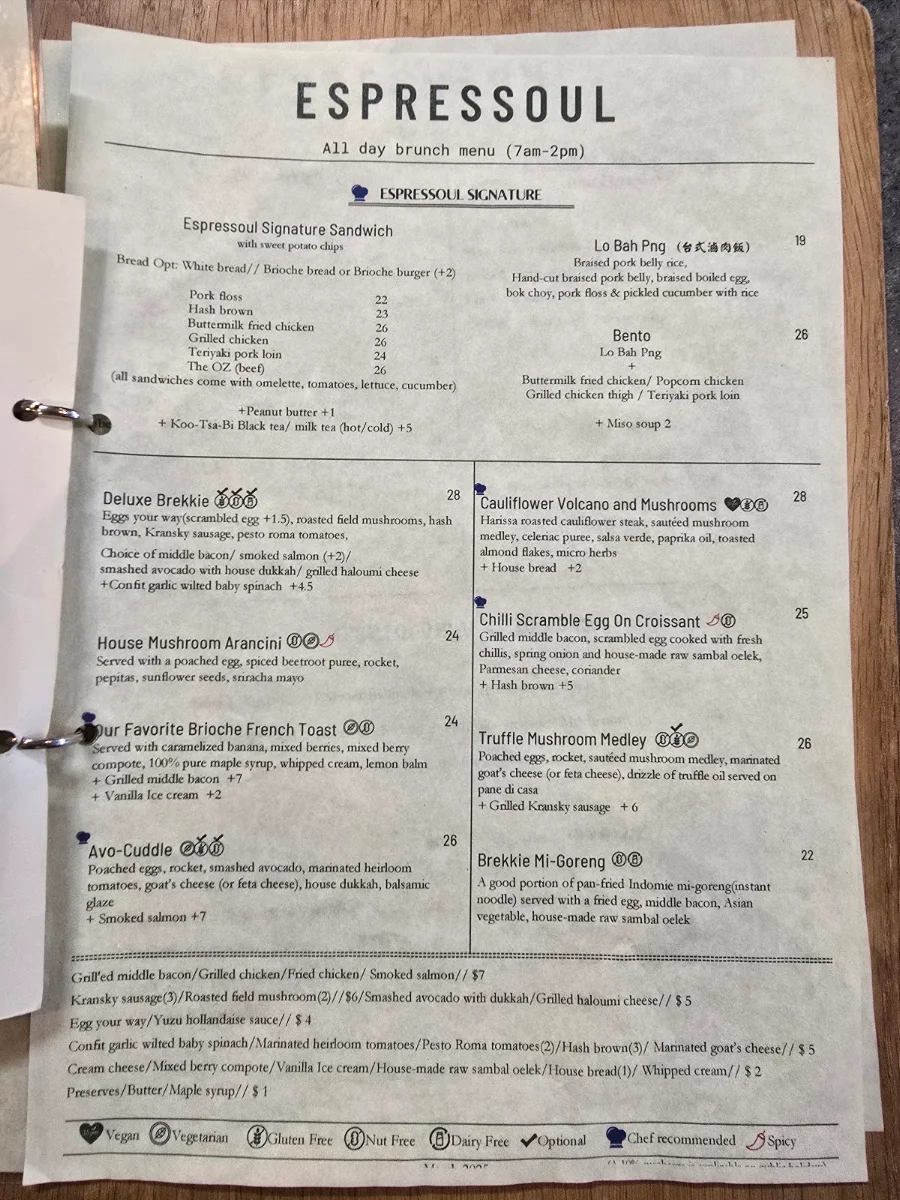 ESPRESSOUL
All day brunch menu (7am-2pm)
ESPRESSOUL SIGNATURE
Espressoul Signature Sandwich
with sweet potato chips
Bread Opt: White bread// Brioche bread or Brioche burger (+2)
Pork floss 22
Hash brown 23
Buttermilk fried chicken 26
Grilled chicken 26
Teriyaki pork loin 24
The OZ (beef) 26
(all sandwiches come with omelette, tomatoes, lettuce, cucumber)
+Peanut butter +1
+ Koo-Tsa-Bi Black tea/ milk tea (hot/cold) +5
Lo Bah Png (台式滷肉飯) 19
Braised pork belly rice,
Hand-cut braised pork belly, braised boiled egg,
bok choy, pork floss & pickled cucumber with rice
Bento 26
Lo Bah Png
+
Buttermilk fried chicken/ Popcorn chicken
Grilled chicken thigh / Teriyaki pork loin
+ Miso soup 2
Deluxe Brekkie 28
Eggs your way(scrambled egg +1.5), roasted field mushrooms, hash
brown, Kransky sausage, pesto roma tomatoes,
Choice of middle bacon/ smoked salmon (+2)/
smashed avocado with house dukkah/ grilled haloumi cheese
+Confit garlic wilted baby spinach +4.5
House Mushroom Arancini 24
Served with a poached egg, spiced beetroot puree, rocket,
pepitas, sunflower seeds, sriracha mayo
Our Favorite Brioche French Toast 24
Served with caramelized banana, mixed berries, mixed berry
compote, 100% pure maple syrup, whipped cream, lemon balm
+ Grilled middle bacon +7
+ Vanilla Ice cream +2
Avo-Cuddle 26
Poached eggs, rocket, smashed avocado, marinated heirloom
tomatoes, goat's cheese (or feta cheese), house dukkah, balsamic
glaze
+ Smoked salmon +7
Cauliflower Volcano and Mushrooms 28
Harissa roasted cauliflower steak, sautéed mushroom
medley, celeriac puree, salsa verde, paprika oil, toasted
almond flakes, micro herbs
+ House bread +2
Chilli Scramble Egg On Croissant 25
Grilled middle bacon, scrambled egg cooked with fresh
chillis, spring onion and house-made raw sambal oelek,
Parmesan cheese, coriander
+ Hash brown +5
Truffle Mushroom Medley 26
Poached eggs, rocket, sautéed mushroom medley, marinated
goat's cheese (or feta cheese), drizzle of truffle oil served on
pane di casa
+ Grilled Kransky sausage + 6
Brekkie Mi-Goreng 22
A good portion of pan-fried Indomie mi-goreng(instant
noodle) served with a fried egg, middle bacon, Asian
vegetable, house-made raw sambal oelek
Grill'ed middle bacon/Grilled chicken/Fried chicken/ Smoked salmon// $7
Kransky sausage(3)/Roasted field mushroom(2)//$6/Smashed avocado with dukkah/Grilled haloumi cheese// $ 5
Egg your way/Yuzu hollandaise sauce// $ 4
Confit garlic wilted baby spinach/Marinated heirloom tomatoes/Pesto Roma tomatoes(2)/Hash brown(3)/ Marinated goat's cheese// $ 5
Cream cheese/Mixed berry compote/Vanilla Ice cream/House-made raw sambal oelek/House bread(1)/ Whipped cream// $ 2
Preserves/Butter/Maple syrup// $ 1
Vegan Vegetarian Gluten Free Nut Free Dairy Free Optional Chef recommended Spicy